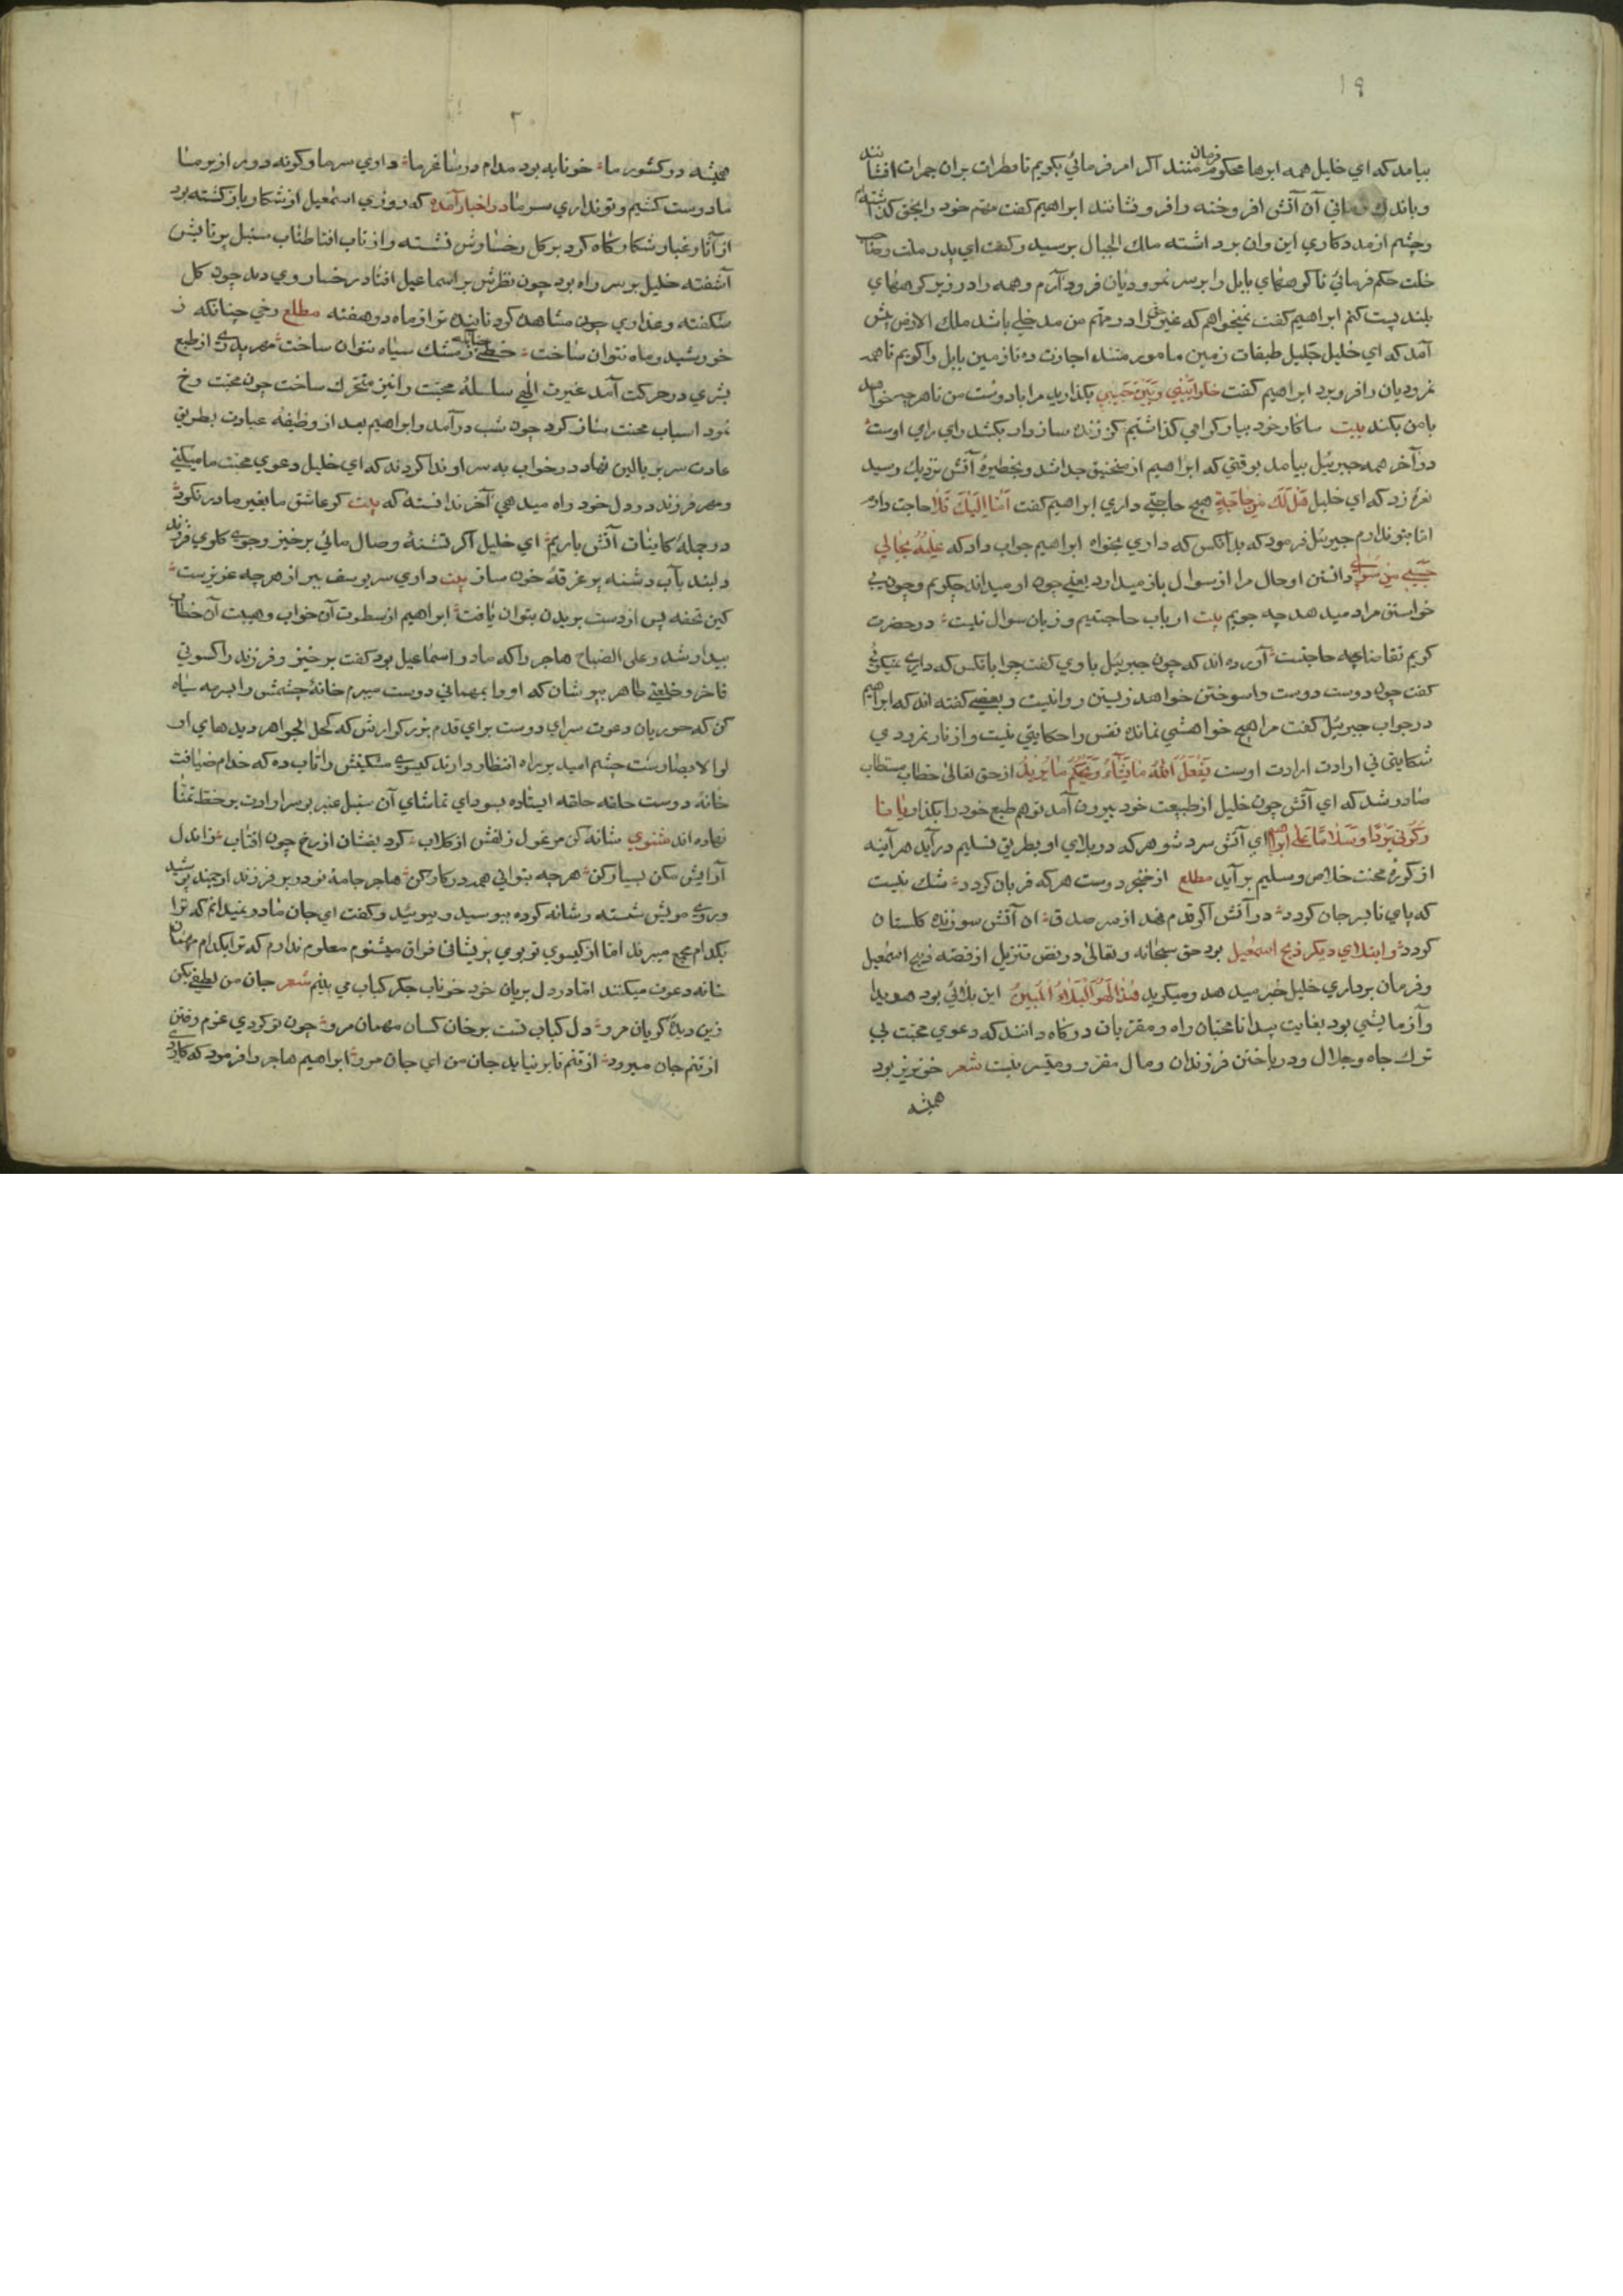 ١٩
بیامد که ای خلیل همه ابرها محکوم فرمان منند اگر امر فرمائی بگویم تا مطرات بران جمرات افشانند
و باندك زمانی آن آتش افروخته را فرو نشانند ابراهیم گفت مهم خود را بحق گذاشته‌ام
و چشم از مددکاری این و آن برداشته ملك الجبال برسید و گفت ای پدر ملت و صاحب
خلت حکم فرمائی تا کوههای بابل را بر سر نمرودیان فرود آرم و همه را در زیر کوههای
بلند پست کنم ابراهیم گفت نمیخواهم که غیری را در مهم من مدخلی باشد ملك الارض پیش
آمد که ای خلیل جلیل طبقات زمین مامور منند اجازت ده تا زمین بابل را گویم تا همه
نمرودیان را فرو برد ابراهیم گفت خلوا بینی و بین حبیبی بگذارید مرا با دوست من تا هرچه خواهد
با من بکند بیت ما کار خود بیار گرامی گذاشتیم گر زنده سازد ار بکشد رای رای اوست
در آخر همه جبرئیل بیامد بوقتی که ابراهیم از منجنیق جدا شد و بخطیرهٔ آتش نزدیك رسید
نعره زد که ای خلیل هل لك من حاجة هیچ حاجتی داری ابراهیم گفت اما الیك فلا حاجت دارم
اما بتو ندارم جبرئیل فرمود که بدانکس که داری بخواه ابراهیم جواب داد که علمه بحالی
حسبی من سوالی دانستن او حال مرا از سوال باز میدارد یعنی چون او میداند چگویم و چون بی
خواستن مراد میدهد چه جویم بیت ارباب حاجتیم و زبان سوال نیست در حضرت
کریم تقاضا چه حاجتست آورده اند که چون جبرئیل با وی گفت چرا بانکس که داری نمیگوئی
گفت چون دوست دوست را سوختن خواهد زیستن روا نیست و بعضی گفته اند که ابراهیم
در جواب جبرئیل گفت مرا هیچ خواهشی نمانده نفس را حکایتی نیست و از نار نمرودی
شکایتی نی ارادت ارادت اوست یفعل الله ما یشاء و یحکم ما یرید از حق تعالی خطاب مستطاب
صادر شد که ای آتش چون خلیل از طبیعت خود بیرون آمد تو هم طبع خود را بگذار یا نا
ر کونی بردا و سلاما علی ابراهیم ای آتش سرد شو هر که در بلای او بطریق تسلیم درآید هر آینه
از کورهٔ محنت خلاص و سلیم برآید مطلع از خنجر دوست هر که قربان گردد شك نیست
که پای تا بسر جان گردد در آتش اگر قدم نهد از سر صدق ان آتش سوزنده گلستان
گردد و ابتلای دیگر ذبح اسمعیل بود حق سبحانه و تعالی در نص تنزیل از قصه ذبح اسمعیل
و فرمان برداری خلیل خبر میدهد و میگوید هذا لهو البلاء المبین این بلائی بود هویدا
و آزمایشی بود بغایت پیدا تا محبان راه و مقربان درگاه دانند که دعوی محبت بی
ترك جاه و جلال و درباختن فرزندان و مال مقرر و میسر نیست شعر خونریز بود
همیشه
٢٠
همیشه در کشور ما خونابه بود مدام در ساغر ما داری سر ما و گرنه دور از بر ما
ما دوست کشیم و تو نداری سر ما در اخبار آمده که روزی اسمعیل از شکار بازگشته بود
از آثار غبار شکارگاه گرد بر گل رخسارش نشسته و از تاب افتاب طناب سنبل پرتابش
آشفته خلیل بر سر راه بود چون نظرش بر اسماعیل افتاد رخساری دید چون گل
شکفته و عذاری چون مشاهده کرد تابنده تر از ماه دو هفته مطلع رخی چنانکه ز
خورشید و ماه نتوان ساخت خطی چنانکه ز مشك سیاه نتوان ساخت مهر پدری از طبع
بشری در حرکت آمد غیرت الهی سلسلهٔ محبت را نیز متحرك ساخت چون محبت رخ
نمود اسباب محنت ساز کرد چون شب درآمد و ابراهیم بعد از وظیفهٔ عبادت بطریق
عادت سر بر بالین نهاد در خواب به سر او ندا کردند که ای خلیل دعوی محبت ما میکنی
و مهر فرزند در دل خود راه میدهی آخر ندانستهٔ که بیت گر عاشق ما بغیر ما درنگرد
در جملهٔ کاینات آتش باریم ای خلیل اگر تشنهٔ وصال مائی برخیز و جوی گلوی فرزند
دلبند بآب دشنه پر غرقهٔ خون ساز بیت داری سر یوسف ببر از هر چه عزیزست
کین تحفه پس از دست بریدن بتوان یافت ابراهیم از سطوت آن خواب و هیبت آن خطاب
بیدار شد و علی الصباح هاجر را که مادر اسماعیل بود گفت برخیز و فرزند را کسوتی
فاخر و خلعتی طاهر بپوشان که او را بمهمانی دوست میبرم خانهٔ چشمش را بسرمه سیاه
کن که حوریان دعوت سرای دوست برای قدم بزرگوارش که کحل الجواهر دیدهای او
لوا لابصارست چشم امید بر راه انتظار دارند گیسوی مشکینش را تاب ده که خدام ضیافت
خانهٔ دوست حلقه حلقه ایستاده بسودای تماشای آن سنبل عنبر بو سر ارادت بر خط تمنا
نهاده اند مثنوی شانه کن مرغول زلفش از گلاب گرد بفشان از رخ چون افتاب زاند ل
آرایش مکن بسیار کن هرچه بتوانی همه در کار کن هاجر جامهٔ نو در بر فرزند ارجمند پوشید
و روی مویش شسته و شانه کرده ببوسید و ببوئید و گفت ای جان مادر نمیدانم که ترا
بکدام مجمع میبرند اما از گیسوی تو بوی پریشانی فراق میشنوم معلوم ندارم که ترا بکدام مهمان
خانه دعوت میکنند اما در دل بریان خود خوناب جگر کباب می بینم شعر جان من لطفی بکن
زین دیدهٔ گریان مرو دل کباب تست بر خان کسان مهمان مرو چون تو کردی عزم رفتن
از تنم جان میرود از تنم تا بر نیاید جان من ای جان مرو ابراهیم هاجر را فرمود که کاردی